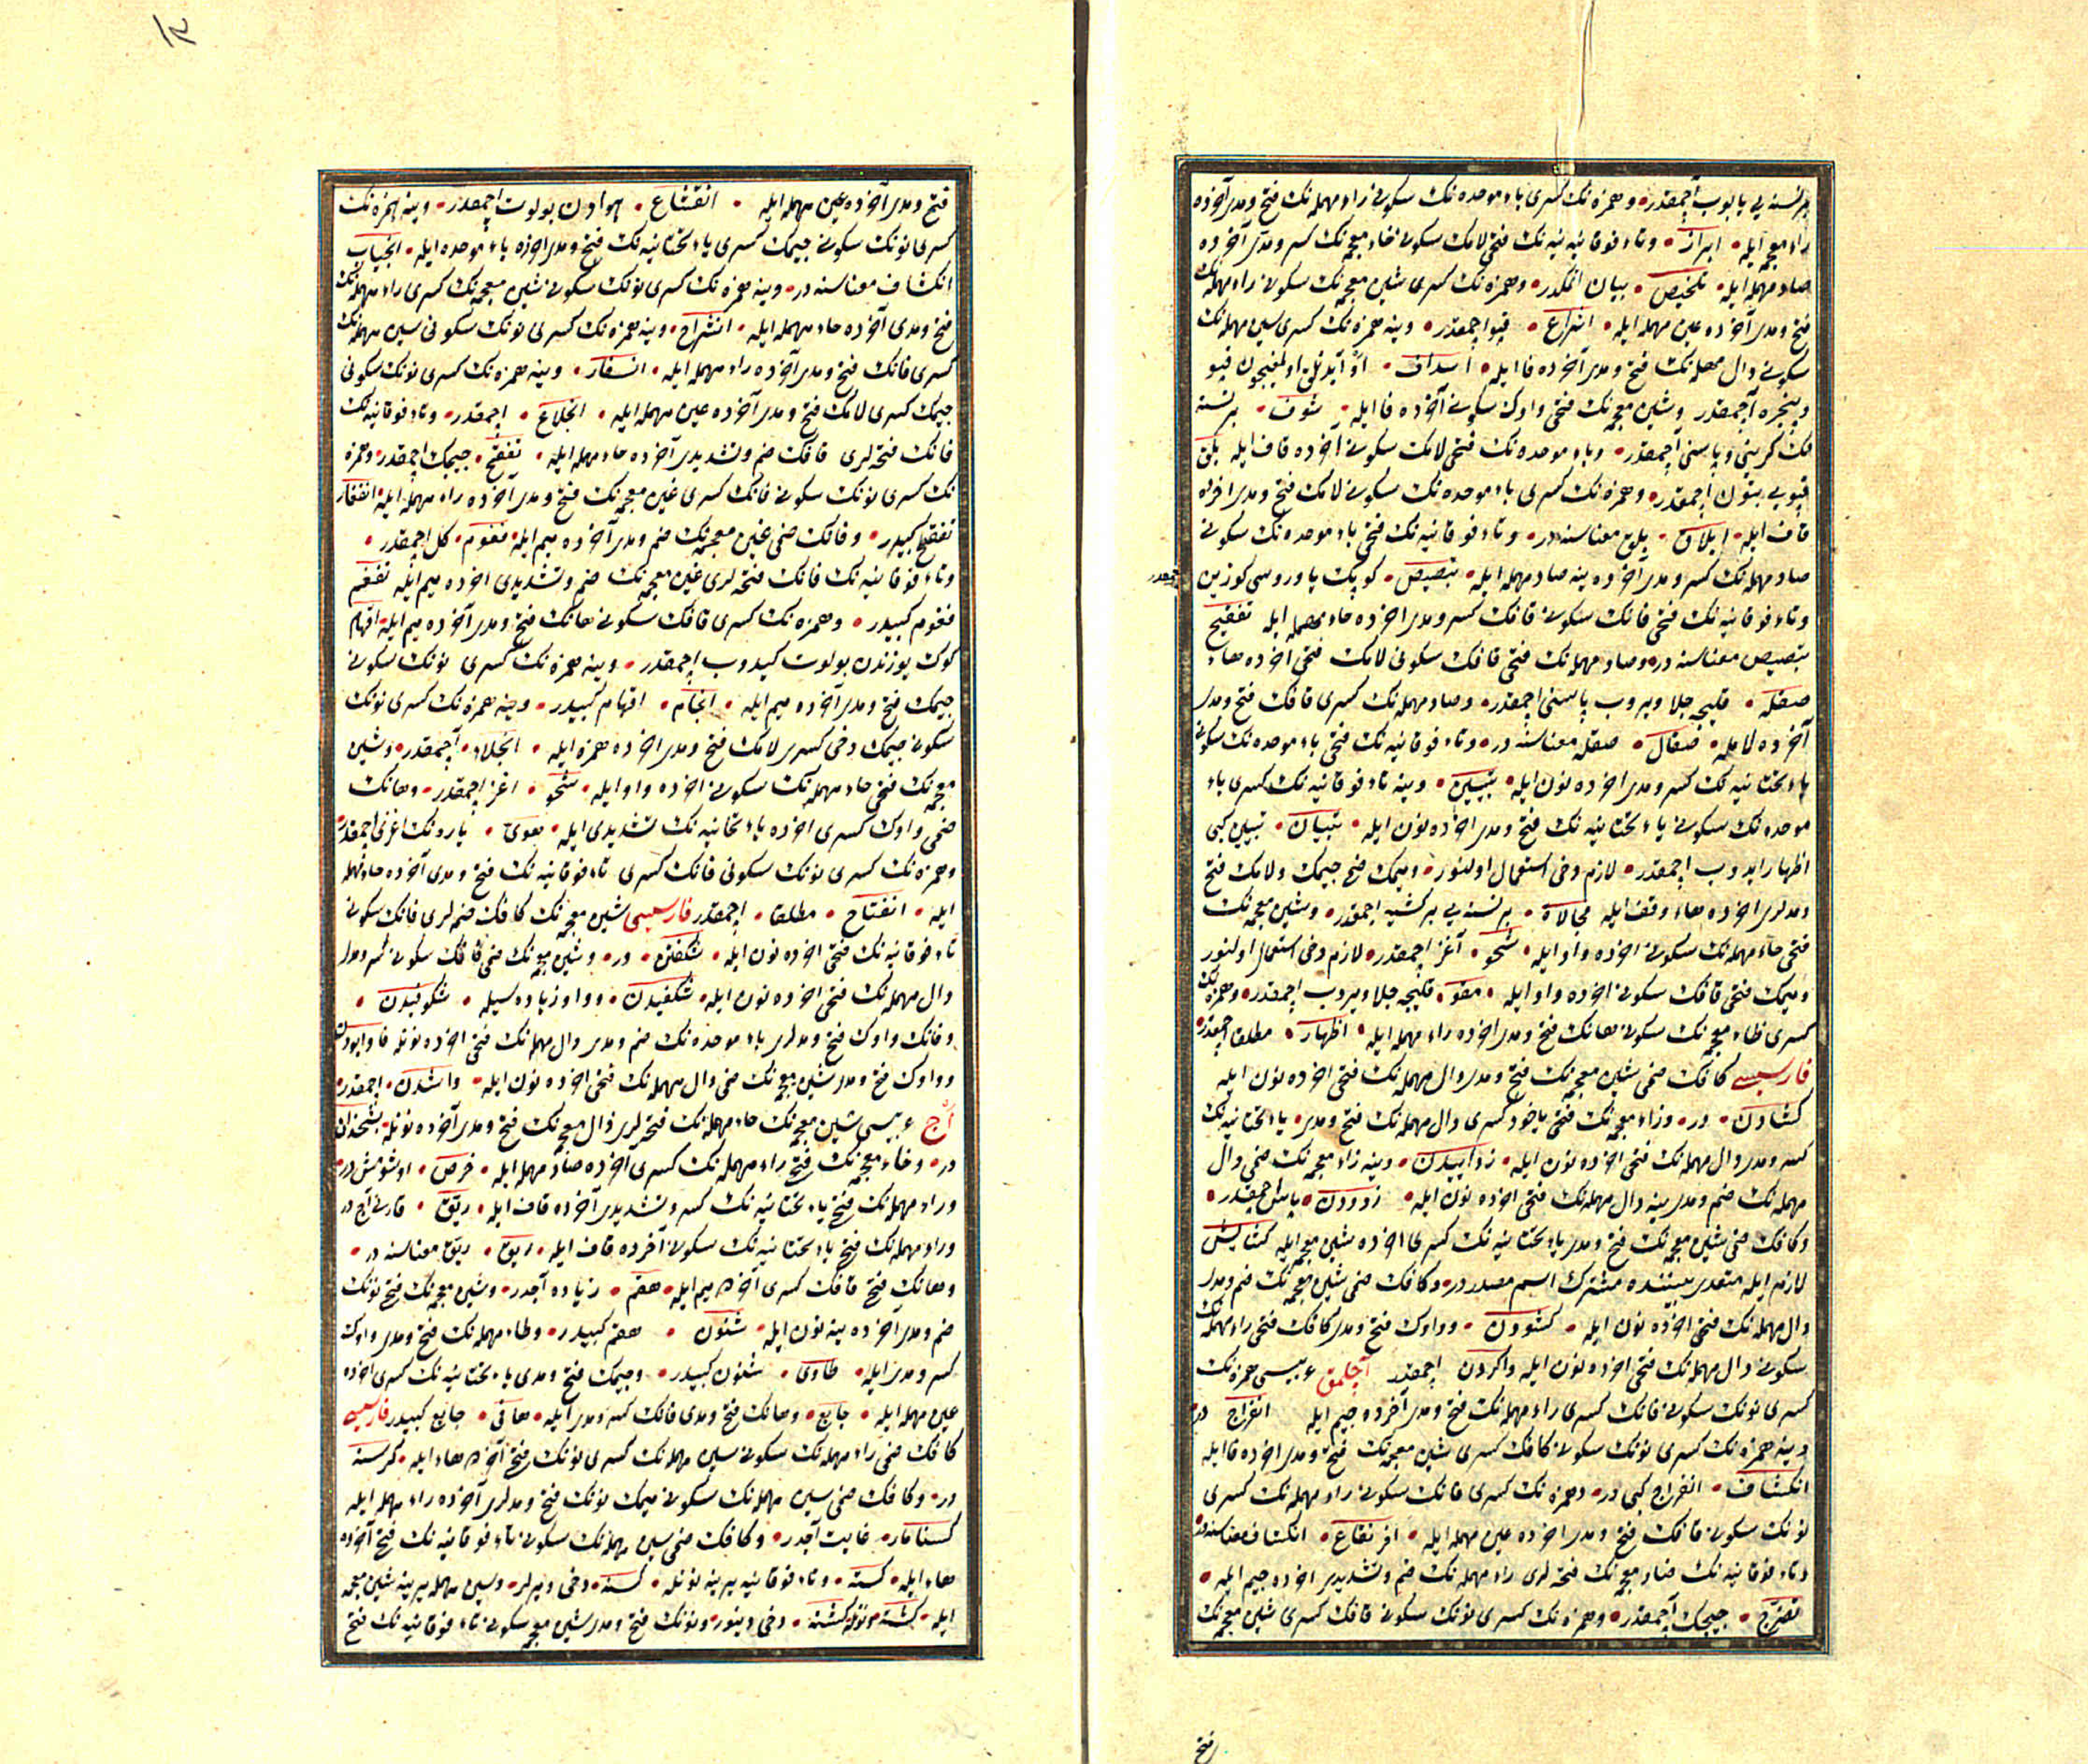 بر نسنه یی یا یوب آچمقدر و همزه نک کسری باء موحده نک سکونی راء مهمله نک فتح و مدی آخرده
زاء معجمه ایله ابراز و تاء فوقانیه نک فتحی لامک سکونی خاء معجمه نک کسر و مدی آخرده
صاد مهمله ایله تلخیص بیان اتمکدر و همزه نک کسری شین معجمه نک سکونی راء مهمله نک
فتح و مدی آخرده عین مهمله ایله اشراع قپو اچمقدر وینه همزه نک کسری سین مهمله نک
سکونی دال مهمله نک فتح و مدی آخرده فا ایله اسداف او آیدنلق اولمغیچون قپو
و پنجره آچمقدر و شین معجمه نک فتحی واوک سکونی آخرده فا ایله شوف بر نسنه
نک کرینی و پاسنی آچمقدر و باء موحده نک فتحی لامک سکونی آخرده قاف ایله بلق
قپویی بتون آچمقدر و همزه نک کسری باء موحده نک سکونی لامک فتح و مدی اخرده
قاف ایله ابلاق بلق معناسنه در و تاء فوقانیه نک فتحی باء موحده نک سکونی
صاد مهمله نک کسر و مدی آخرده ینه صاد مهمله ایله تبصیص کوپک یاوروسی کوزین
و تاء فوقانیه نک فتحی فانک سکونی قافک کسر و مدی اخرده حاء مهمله ایله تفقیح
تبصیص معناسنه در و صاد مهمله نک فتحی قافک سکونی لامک فتحی اخرده هاء
صقله قلیجه جلا ویروب پاسنی اچمقدر و صاد مهمله نک کسری قافک فتح و مدی
آخرده لامله صقال صقله معناسنه در و تاء فوقانیه نک فتحی باء موحده نک سکونی
یاء تحتانیه نک کسر و مدی اخرده نون ایله تبیین وینه تاء فوقانیه نک کسری باء
موحده نک سکونی یاء تحتانیه نک فتح و مدی اخرده نون ایله تبیان تبیین کبی
اظهار ایدوب اچمقدر لازم دخی استعمال اولنور و میمک فتح جیمک و لامک فتح
و مدلری اخرده هاء وقف ایله مجالاة بر نسنه یی بر کشیه اچمقدر و شین معجمه نک
فتحی حاء مهمله نک سکونی اخرده واو ایله شحو آغز اچمقدر لازم دخی استعمال اولنور
و میمک فتحی قافک سکونی اخرده واو ایله مقو قلیجه جلا ویروب اچمقدر و همزه نک
کسری ظاء معجمه نک سکونی هانک فتح و مدی اخرده راء مهمله ایله اظهار مطلقا اچمقدر
فارسیسی کافک ضمی شین معجمه نک فتح و مدی دال مهمله نک فتحی اخرده نون ایله
کشادن در و زاء معجمه نک فتحی یاخود کسری دال مهمله نک فتح و مدی یاء تحتانیه نک
کسر و مدی دال مهمله نک فتحی اخرده نون ایله زداییدن وینه زاء معجمه نک ضمی دال
مهمله نک ضم و مدی ینه دال مهمله نک فتحی اخرده نون ایله زدودن پاس اچمقدر
و کافک ضمی شین معجمه نک فتح و مدی یاء تحتانیه نک کسری اخرده شین معجمه ایله کشایش
لازم ایله متعدی بیننده مشترک اسم مصدردر و کافک ضمی شین معجمه نک ضم و مدی
دال مهمله نک فتحی اخرده نون ایله کشودن و واوک فتح و مدی کافک فتحی راء مهمله نک
سکونی دال مهمله نک فتحی اخرده نون ایله واکردن اچمقدر آچلمق عربیسی همزه نک
کسری نونک سکونی فانک کسری راء مهمله نک فتح و مدی آخرده جیم ایله انفراج در
وینه همزه نک کسری نونک سکونی کافک کسری شین معجمه نک فتح و مدی اخرده فا ایله
انکشاف انفراج کبی در و همزه نک کسری فانک سکونی راء مهمله نک کسری
نونک سکونی قافک فتح و مدی اخرده عین مهمله ایله افرنقاع انکشاف معناسنه در
و تاء فوقانیه نک ضاد معجمه نک فتحه لری راء مهمله نک ضم و تشدیدی اخرده جیم ایله
تضرج چیچک آچمقدر و همزه نک کسری نونک سکونی قافک کسری شین معجمه نک
فتح
فتح و مدی آخرده عین مهمله ایله انقشاع هوادن بولوت اچمقدر وینه همزه نک
کسری نونک سکونی جیمک کسری یاء تحتانیه نک فتح و مدی اخرده باء موحده ایله انجیاب
انکشاف معناسنه در وینه همزه نک کسری نونک سکونی شین معجمه نک کسری راء مهمله نک
فتح و مدی آخرده حاء مهمله ایله انشراح وینه همزه نک کسری نونک سکونی سین مهمله نک
کسری فانک فتح و مدی آخرده راء مهمله ایله انسفار وینه همزه نک کسری نونک سکونی
جیمک کسری لامک فتح و مدی آخرده عین مهمله ایله انجلاع اچمقدر و تاء فوقانیه نک
فانک فتحه لری قافک ضم و تشدیدی آخرده حاء مهمله ایله تفقح چیچک اچمقدر و همزه
نک کسری نونک سکونی فانک کسری غین معجمه نک فتح و مدی آخرده راء مهمله ایله انفغار
تفقح کبیدر و فانک ضمی غین معجمه نک ضم و مدی آخرده میم ایله فغوم کل اچمقدر
و تاء فوقانیه نک فانک فتحه لری غین معجمه نک ضم و تشدیدی اخرده میم ایله تفغم
فغوم کبیدر و همزه نک کسری قافک سکونی هانک فتح و مدی آخرده میم ایله اقهام
کوک یوزندن بولوت کیدوب اچمقدر وینه همزه نک کسری نونک سکونی
جیمک فتح و مدی آخرده میم ایله انجام اقهام کبیدر وینه همزه نک کسری نونک
سکونی جیمک دخی کسری لامک فتح و مدی اخرده همزه ایله انجلاء آچمقدر و شین
معجمه نک فتحی حاء مهمله نک سکونی اخرده واو ایله شحو اغز اچمقدر و هانک
ضمی واوک کسری اخرده یاء تحتانیه نک تشدیدی ایله هوی یارونک اغزی اچمقدر
و همزه نک کسری نونک سکونی فانک کسری تاء فوقانیه نک فتح و مدی آخرده حاء مهمله
ایله انفتاح مطلقا اچمقدر فارسیسی شین معجمه نک کافک ضمه لری فانک سکونی
تاء فوقانیه نک فتحی اخرده نون ایله شکفتن در و شین معجمه نک ضمی کافک سکونی کسر و مدی
دال مهمله نک فتحی اخرده نون ایله شکفیدن و واو زیاده سیله شکوفیدن
و فانک واوک فتح و مدلری باء موحده نک ضم و مدی دال مهمله نک فتحی اخرده نونله فاوابودن
و واوک فتح و مدی شین معجمه نک ضمی دال مهمله نک فتحی اخرده نون ایله واشدن اچمقدر
آج عربیسی شین معجمه نک حاء مهمله نک فتحه لری ذال معجمه نک فتح و مدی آخرده نونله شحذان
در و خاء معجمه نک فتح راء مهمله نک کسری آخرده صاد مهمله ایله خرص اوشومش در
و راء مهمله نک فتح یاء تحتانیه نک کسر و تشدیدی آخرده قاف ایله ریق قارنی آج در
و راء مهمله نک فتح یاء تحتانیه نک سکونی آخرده قاف ایله ریق ریق معناسنه در
و هانک فتح قافک کسری آخره میم ایله هقم زیاده آجدر و شین معجمه نک فتح نونک
ضم و مدی آخرده ینه نون ایله شنون هقم کبیدر و طاء مهمله نک فتح و مدی واوک
کسر و مدی ایله طاوی شنون کبیدر و جیمک فتح و مدی یاء تحتانیه نک کسری اخرده
عین مهمله ایله جایع و هانک فتح و مدی فانک کسر و مدی ایله هافی جایع کبیدر فارسیسی
کافک ضمی راء مهمله نک سکونی سین مهمله نک کسری نونک فتح آخره هاء ایله کرسنه
در و کافک ضمی سین مهمله نک سکونی میمک نونک فتح و مدلری آخرده راء مهمله ایله
کسنامار غایت آجدر و کافک ضمی سین مهمله نک سکونی تاء فوقانیه نک فتح آخرده
هاء ایله کسته و تاء فوقانیه یرینه نونله کسنه دخی دیرلر و سین مهمله یرینه شین معجمه
ایله کشته و نونله کشنه دخی دینور و نونک فتح و مدی شین معجمه سکونی تاء فوقانیه نک فتح